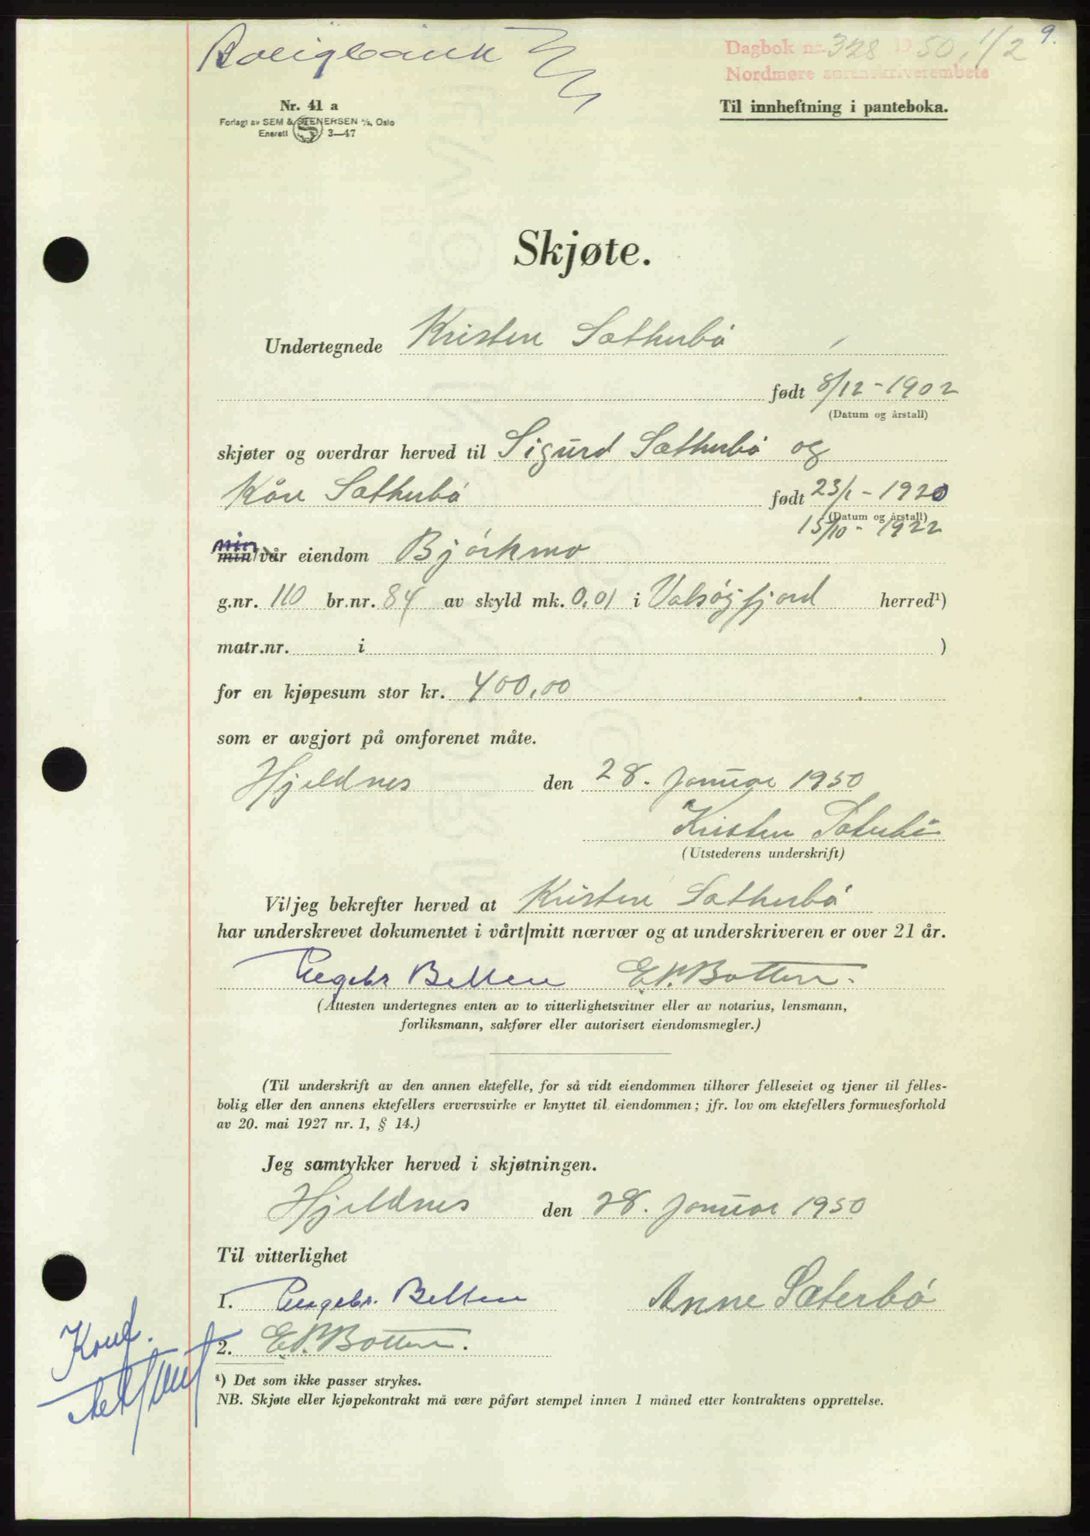 Boligbank
9.
Dagbok nr. 328 1950, 1/2
Nordmøre sorenskriverembete
Nr. 41 a
Forlagt av SEM & STENERSEN A/S, Oslo
Enerett 3—47
Til innheftning i panteboka.
Skjøte.
Undertegnede Kristen Sætherbö
født 8/12-1902
(Datum og årstall)
skjøter og overdrar herved til Sigurd Sætherbö og
Kåre Sætherbö født 23/1-1920
(Datum og årstall)
15/10-1922
min
min/vår eiendom Björkmo
g.nr. 110 br.nr. 84 av skyld mk. 0,01 i Valsöyfjord herred¹)
matr.nr. i )
for en kjøpesum stor kr. 400,00
som er avgjort på omforenet måte.
Hjeldnes den 28. Januar 1950
Kristen Sæterbö
(Utstederens underskrift)
Vi/jeg bekrefter herved at Kristen Sætherbö
har underskrevet dokumentet i vårt/mitt nærvær og at underskriveren er over 21 år.
Engebr. Botten E. P. Botten.
(Attesten undertegnes enten av to vitterlighetsvitner eller av notarius, lensmann,
forliksmann, sakfører eller autorisert eiendomsmegler.)
(Til underskrift av den annen ektefelle, for så vidt eiendommen tilhører felleseiet og tjener til felles-
bolig eller den annens ektefellers ervervsvirke er knyttet til eiendommen; jfr. lov om ektefellers formuesforhold
av 20. mai 1927 nr. 1, § 14.)
Jeg samtykker herved i skjøtningen.
Hjeldnes den 28. Januar 1950
Til vitterlighet
1. Engebr. Botten Anne Sæterbö
2. E. P. Botten.
Konf.
¹) Det som ikke passer strykes.
NB. Skjøte eller kjøpekontrakt må være påført stempel innen 1 måned etter kontraktens opprettelse.